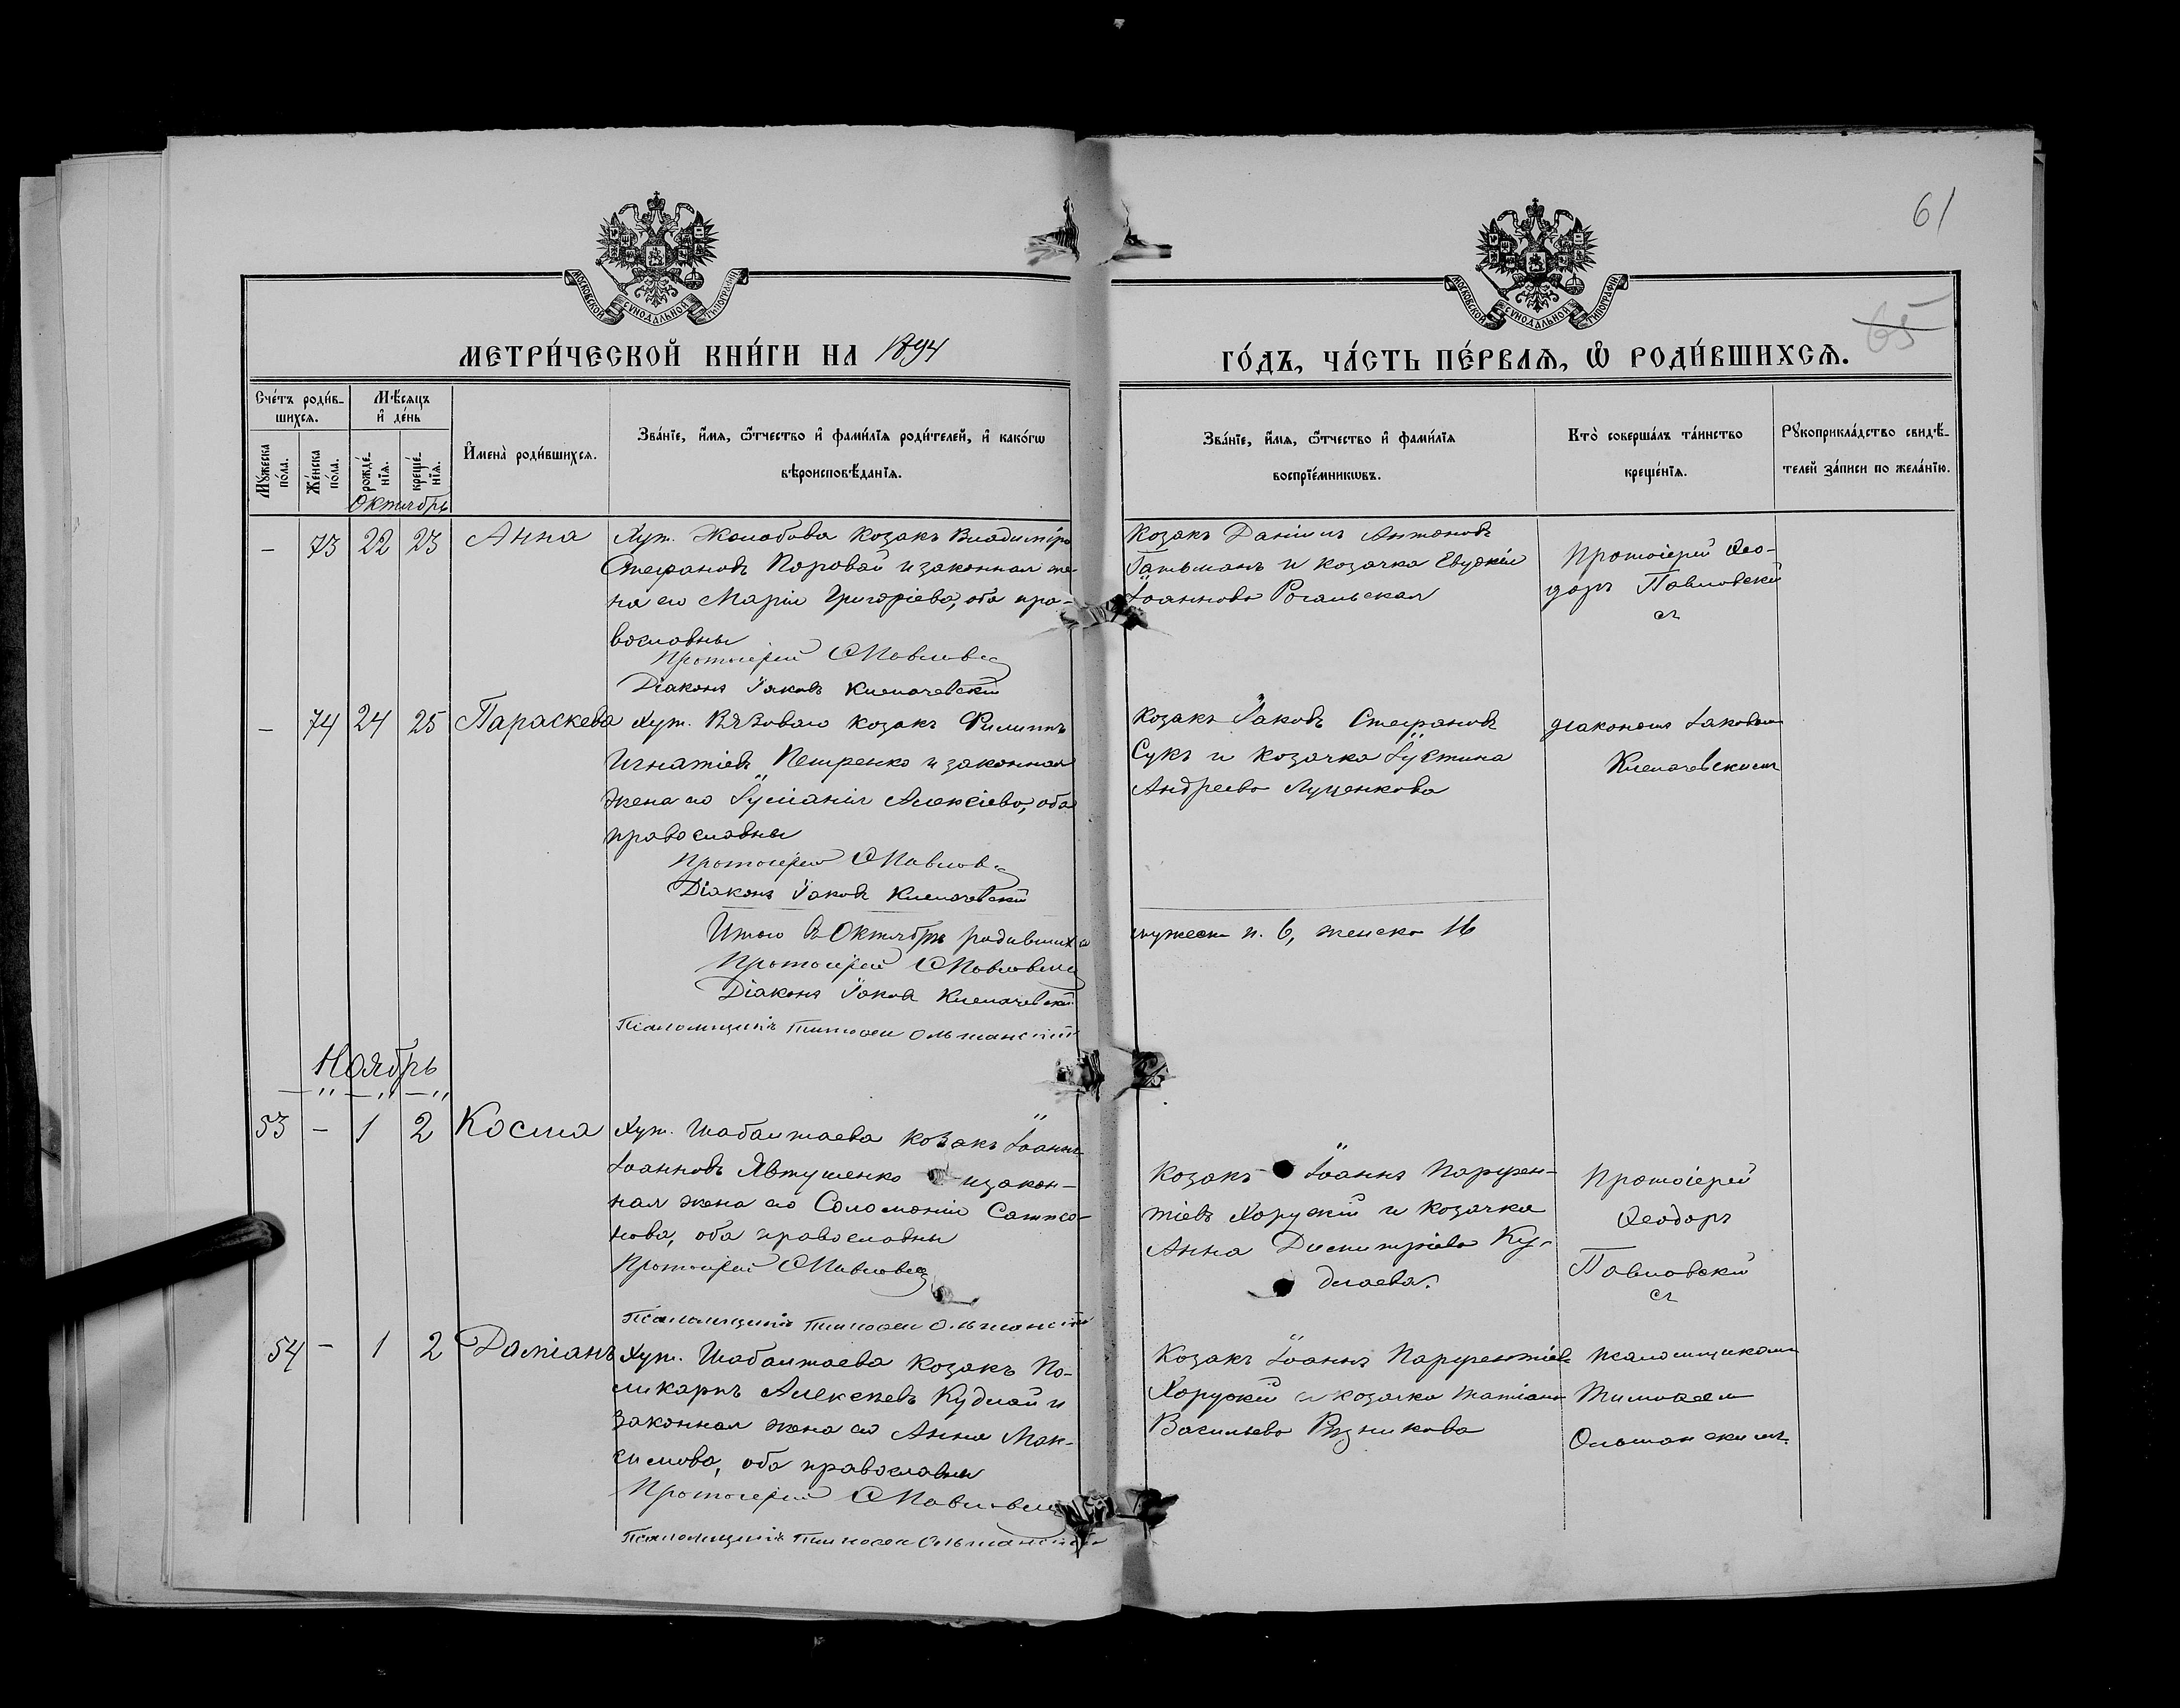 61
65
МОСКОВСКОЙ СѴНОДАЛЬНОЙ ТИПОГРАФІИ
МОСКОВСКОЙ СѴНОДАЛЬНОЙ ТИПОГРАФІИ
МЕТРИ́ЧЕСКОЙ КНИ́ГИ НА 1894
ГО́ДЪ, ЧА́СТЬ ПЕ́РВАѦ, Ѽ РОДИ́ВШИХСѦ.
Сче́тъ роди́в-
шихсѧ.
Мѣ́сяцъ
и҆ де́нь
Мꙋ́жеска
по́ла.
Же́нска
по́ла.
рожде́-
нїѧ.
креще́-
нїѧ.
И҆мена̀ роди́вшихсѧ.
Зва́нїе, и҆́мѧ, ѻ҆́тчество и҆ фами́лїѧ роди́телей, и҆ како́гѡ
вѣроисповѣ́данїѧ.
Зва́нїе, и҆́мѧ, ѻ҆́тчество и҆ фами́лїѧ
воспрїе́мникѡвъ.
Кто̀ соверша́лъ та́инство
креще́нїѧ.
Рꙋкоприкла́дство свидѣ́-
телей за́писи по жела́нїю.
Октябрь
– 73 22 23 Анна
Хут. Жолобова козакъ Владиміръ
Стефановъ Поровай и законная же-
на его Марія Григоріева, оба пра-
вославны
Протоіерей Ѳ Павловск
Діаконъ Іаковъ Клепачевскій
Козакъ Даніилъ Антоновъ
Гатьманъ и козачка Евдокія
Іоаннова Рогальская
Протоіерей Ѳео-
доръ Павловскій
съ
– 74 24 25 Параскева
Хут. Вязоваго козакъ Филиппъ
Игнатіевъ Петренко и законная
жена его Іуліанія Алексіева, оба
православны
Протоіерей Ѳ Павловск
Діаконъ Іаковъ Клепачевскій
Козакъ Іаковъ Стефановъ
Сукъ и козачка Іустина
Андреева Луценкова
діакономъ Іаковомъ
Клепачевскимъ
Итого въ Октябрѣ родившихся
мужеск п. 6, женска 16
Протоіерей Ѳ Павловск
Діаконъ Іаковъ Клепачевскій
Псаломщикъ Тимоѳей Ольшанскій
Ноябрь
53 – 1 2 Косма
Хут. Шабалтаева козакъ Іоаннъ
Іоанновъ Явтушенко и закон-
ная жена его Соломонія Сампсо-
нова, оба православны
Протоіерей Ѳ Павловск
Псаломщикъ Тимоѳей Ольшанскій
Козакъ Іоаннъ Парфен-
тіевъ Хорунжій и козачка
Анна Димитріева Ку-
длаева.
Протоіерей
Ѳеодоръ
Павловскій
съ
54 – 1 2 Даміанъ
Хут. Шабалтаева козакъ По-
ликарпъ Алексѣевъ Кудлай и
законная жена его Анна Мак-
симова, оба православны
Протоіерей Ѳ Павловск
Псаломщикъ Тимоѳей Ольшанскій
Козакъ Іоаннъ Парфентіевъ
Хорунжій и козачка Татіана
Васильева Рѣзникова
псаломщикомъ
Тимоѳеемъ
Ольшанскимъ.